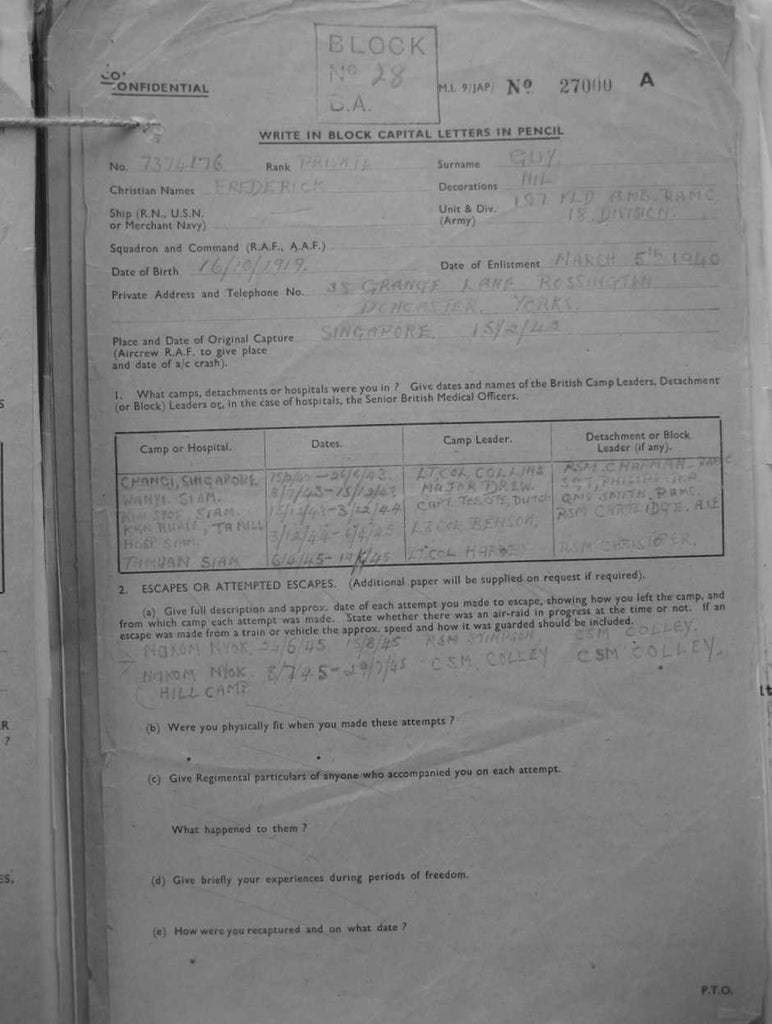 BLOCK
No 28
D.A.
CONFIDENTIAL
M.I. 9/JAP/ No 27000 A
WRITE IN BLOCK CAPITAL LETTERS IN PENCIL
No. 7374176 Rank PRIVATE Surname GUY
Christian Names FREDERICK Decorations NIL
Ship (R.N., U.S.N. or Merchant Navy) Unit & Div. (Army) 197 FLD AMB. RAMC
18 DIVISION.
Squadron and Command (R.A.F., A.A.F.)
Date of Birth 16/10/1919. Date of Enlistment MARCH 5th 1940
Private Address and Telephone No. 35 GRANGE LANE ROSSINGTON
DONCASTER, YORKS.
Place and Date of Original Capture SINGAPORE. 15/2/42
(Aircrew R.A.F. to give place
and date of a/c crash).
1. What camps, detachments or hospitals were you in ? Give dates and names of the British Camp Leaders, Detachment
(or Block) Leaders or, in the case of hospitals, the Senior British Medical Officers.
Camp or Hospital. Dates. Camp Leader. Detachment or Block Leader (if any).
CHANGI, SINGAPORE 15/2/42 - 26/6/43. LT.COL. COLLINS RSM. CHAPMAN. RAMC
SIAM. 8/7/43 - 15/12/43 MAJOR DREW. SGT. PHILLIPS. R.A.
SIAM. 15/12/43 - 3/12/44 CAPT. DUTCH QMS SMITH. RAMC.
TAMILL 3/12/44 - 6/4/45 LT.COL BENSON, RSM CARTLIDGE. A.I.F
HOSP. SIAM.
TAMUAN SIAM 6/4/45 - LT.COL HARVEY RSM CHRISTOFER.
2. ESCAPES OR ATTEMPTED ESCAPES. (Additional paper will be supplied on request if required).
(a) Give full description and approx. date of each attempt you made to escape, showing how you left the camp, and
from which camp each attempt was made. State whether there was an air-raid in progress at the time or not. If an
escape was made from a train or vehicle the approx. speed and how it was guarded should be included.
NAKOM NYOK. 24/6/45 15/8/45 RSM STIMPSON CSM COLLEY.
NAKOM NYOK. 8/7/45 - 29/7/45 CSM. COLLEY CSM COLLEY.
( HILL CAMP
(b) Were you physically fit when you made these attempts ?
(c) Give Regimental particulars of anyone who accompanied you on each attempt.
What happened to them ?
(d) Give briefly your experiences during periods of freedom.
(e) How were you recaptured and on what date ?
P.T.O.